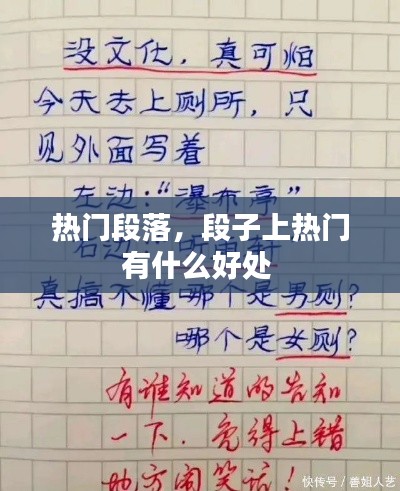 没文化，真可怕
今天去上厕所，只
见外面写着
左边："瀑布亭"
热门段落，段子上热门
有什么好处
真搞不懂哪个是男厕?
哪个是女厕?
有谁知道的告知
一下．免得上错
地方闹笑话！
快传号／善姐人艺